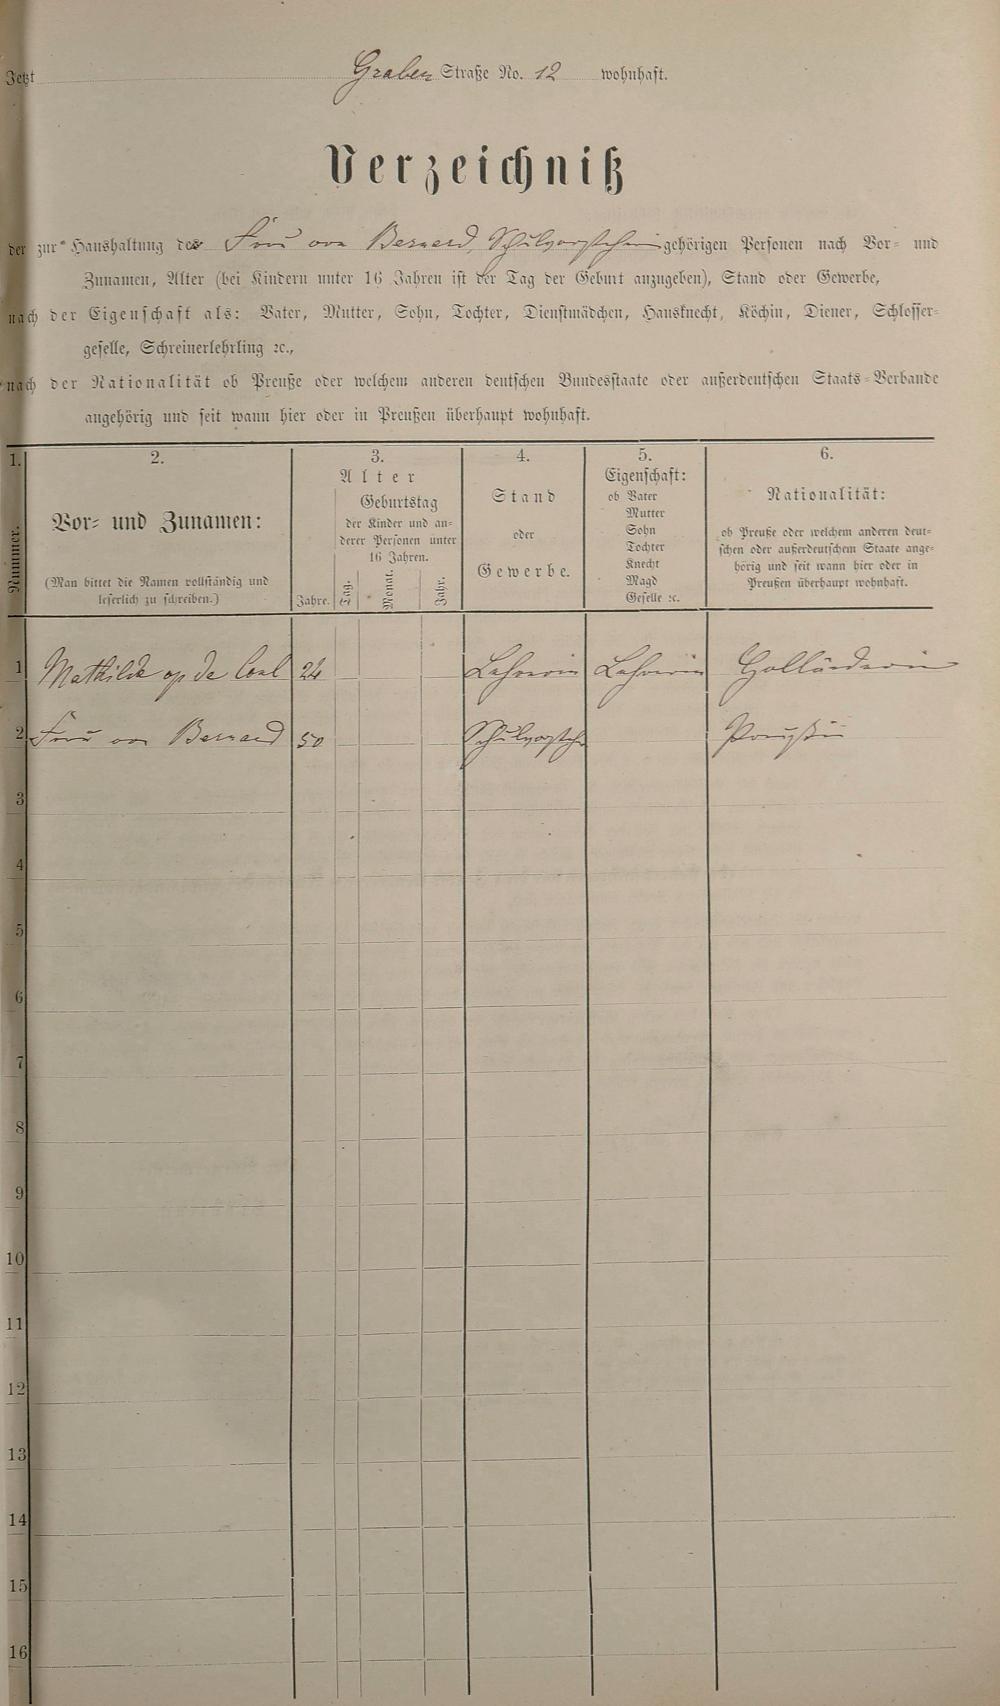 Jetzt Graben Straße No. 12 wohnhaft.
Verzeichniß
der zur Haushaltung des Frau von Bernard, Schulvorsteherin gehörigen Personen nach Vor- und
Zunamen, Alter (bei Kindern unter 16 Jahren ist der Tag der Geburt anzugeben), Stand oder Gewerbe,
nach der Eigenschaft als: Vater, Mutter, Sohn, Tochter, Dienstmädchen, Hausknecht, Köchin, Diener, Schlosser-
geselle, Schreinerlehrling ꝛc.,
nach der Nationalität ob Preuße oder welchem anderen deutschen Bundesstaate oder außerdeutschen Staats-Verbande
angehörig und seit wann hier oder in Preußen überhaupt wohnhaft.
1.
Nummer.
2.
Vor- und Zunamen:
(Man bittet die Namen vollständig und
leserlich zu schreiben.)
3.
Alter
Geburtstag
der Kinder und an-
derer Personen unter
16 Jahren.
Jahre. Tag. Monat. Jahr.
4.
Stand
oder
Gewerbe.
5.
Eigenschaft:
ob Vater
Mutter
Sohn
Tochter
Knecht
Magd
Geselle ꝛc.
6.
Nationalität:
ob Preuße oder welchem anderen deut-
schen oder außerdeutschem Staate ange-
hörig und seit wann hier oder in
Preußen überhaupt wohnhaft.
1 Mathilde op de Coul 24 Lehrerin Lehrerin Holländerin
2 Frau von Bernard 50 Schulvorsteh Preußin
3
4
5
6
7
8
9
10
11
12
13
14
15
16